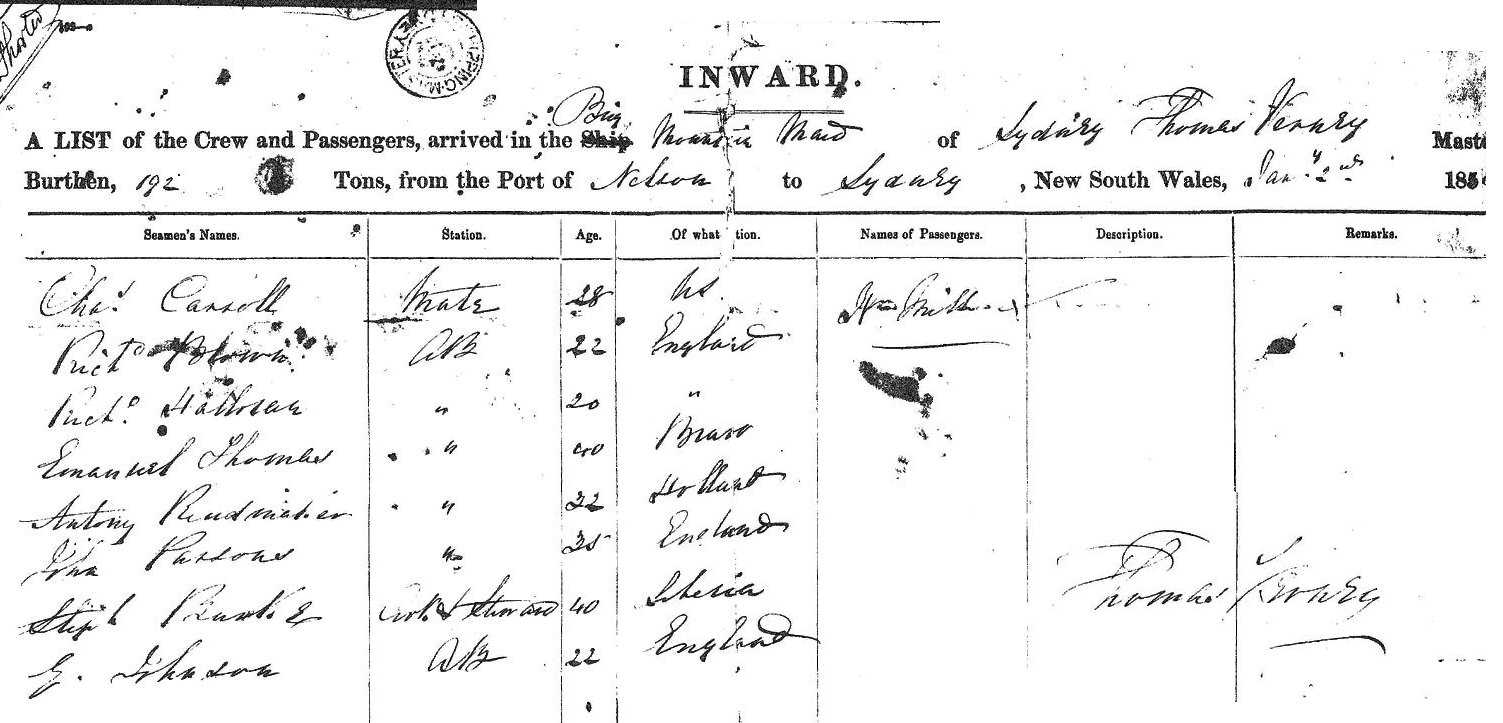 INWARD.
A LIST of the Crew and Passengers, arrived in the Ship Brig Mountain Maid of Sydney Thomas Verney Maste
Burthen, 192 Tons, from the Port of Nelson to Sydney , New South Wales, Jany 2nd 185
Seamen's Names. Station. Age. Of what tion. Names of Passengers. Description. Remarks.
Chas Carroll Mate 28 US. Wm
Richd Brown AB 22 England
Richd Halloran " 20 "
Emanuel Thomas " 40 Bravo
Antony " 32 Holland
John Parsons " 35 England
Steph Cook & Steward 40 Liberia Thomas Verney
G. Johnson AB 22 England